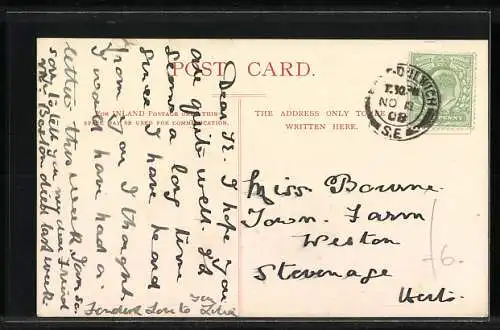 POST CARD.
FOR INLAND POSTAGE ONLY THIS
SPACE MAY BE USED FOR COMMUNICATION.
THE ADDRESS ONLY TO BE
WRITTEN HERE.
DULWICH
NO
08
S.E.
PENNY
Dear I hope you
are quite well. It
seems a long time
since I have heard
from you I thought
I would have had a
letter this week. I am so
sorry to tell you my dear Friend
Mr. died last week
Fondest Love to
Miss Bourne
Town Farm
Weston
Stevenage
Herts.
6.